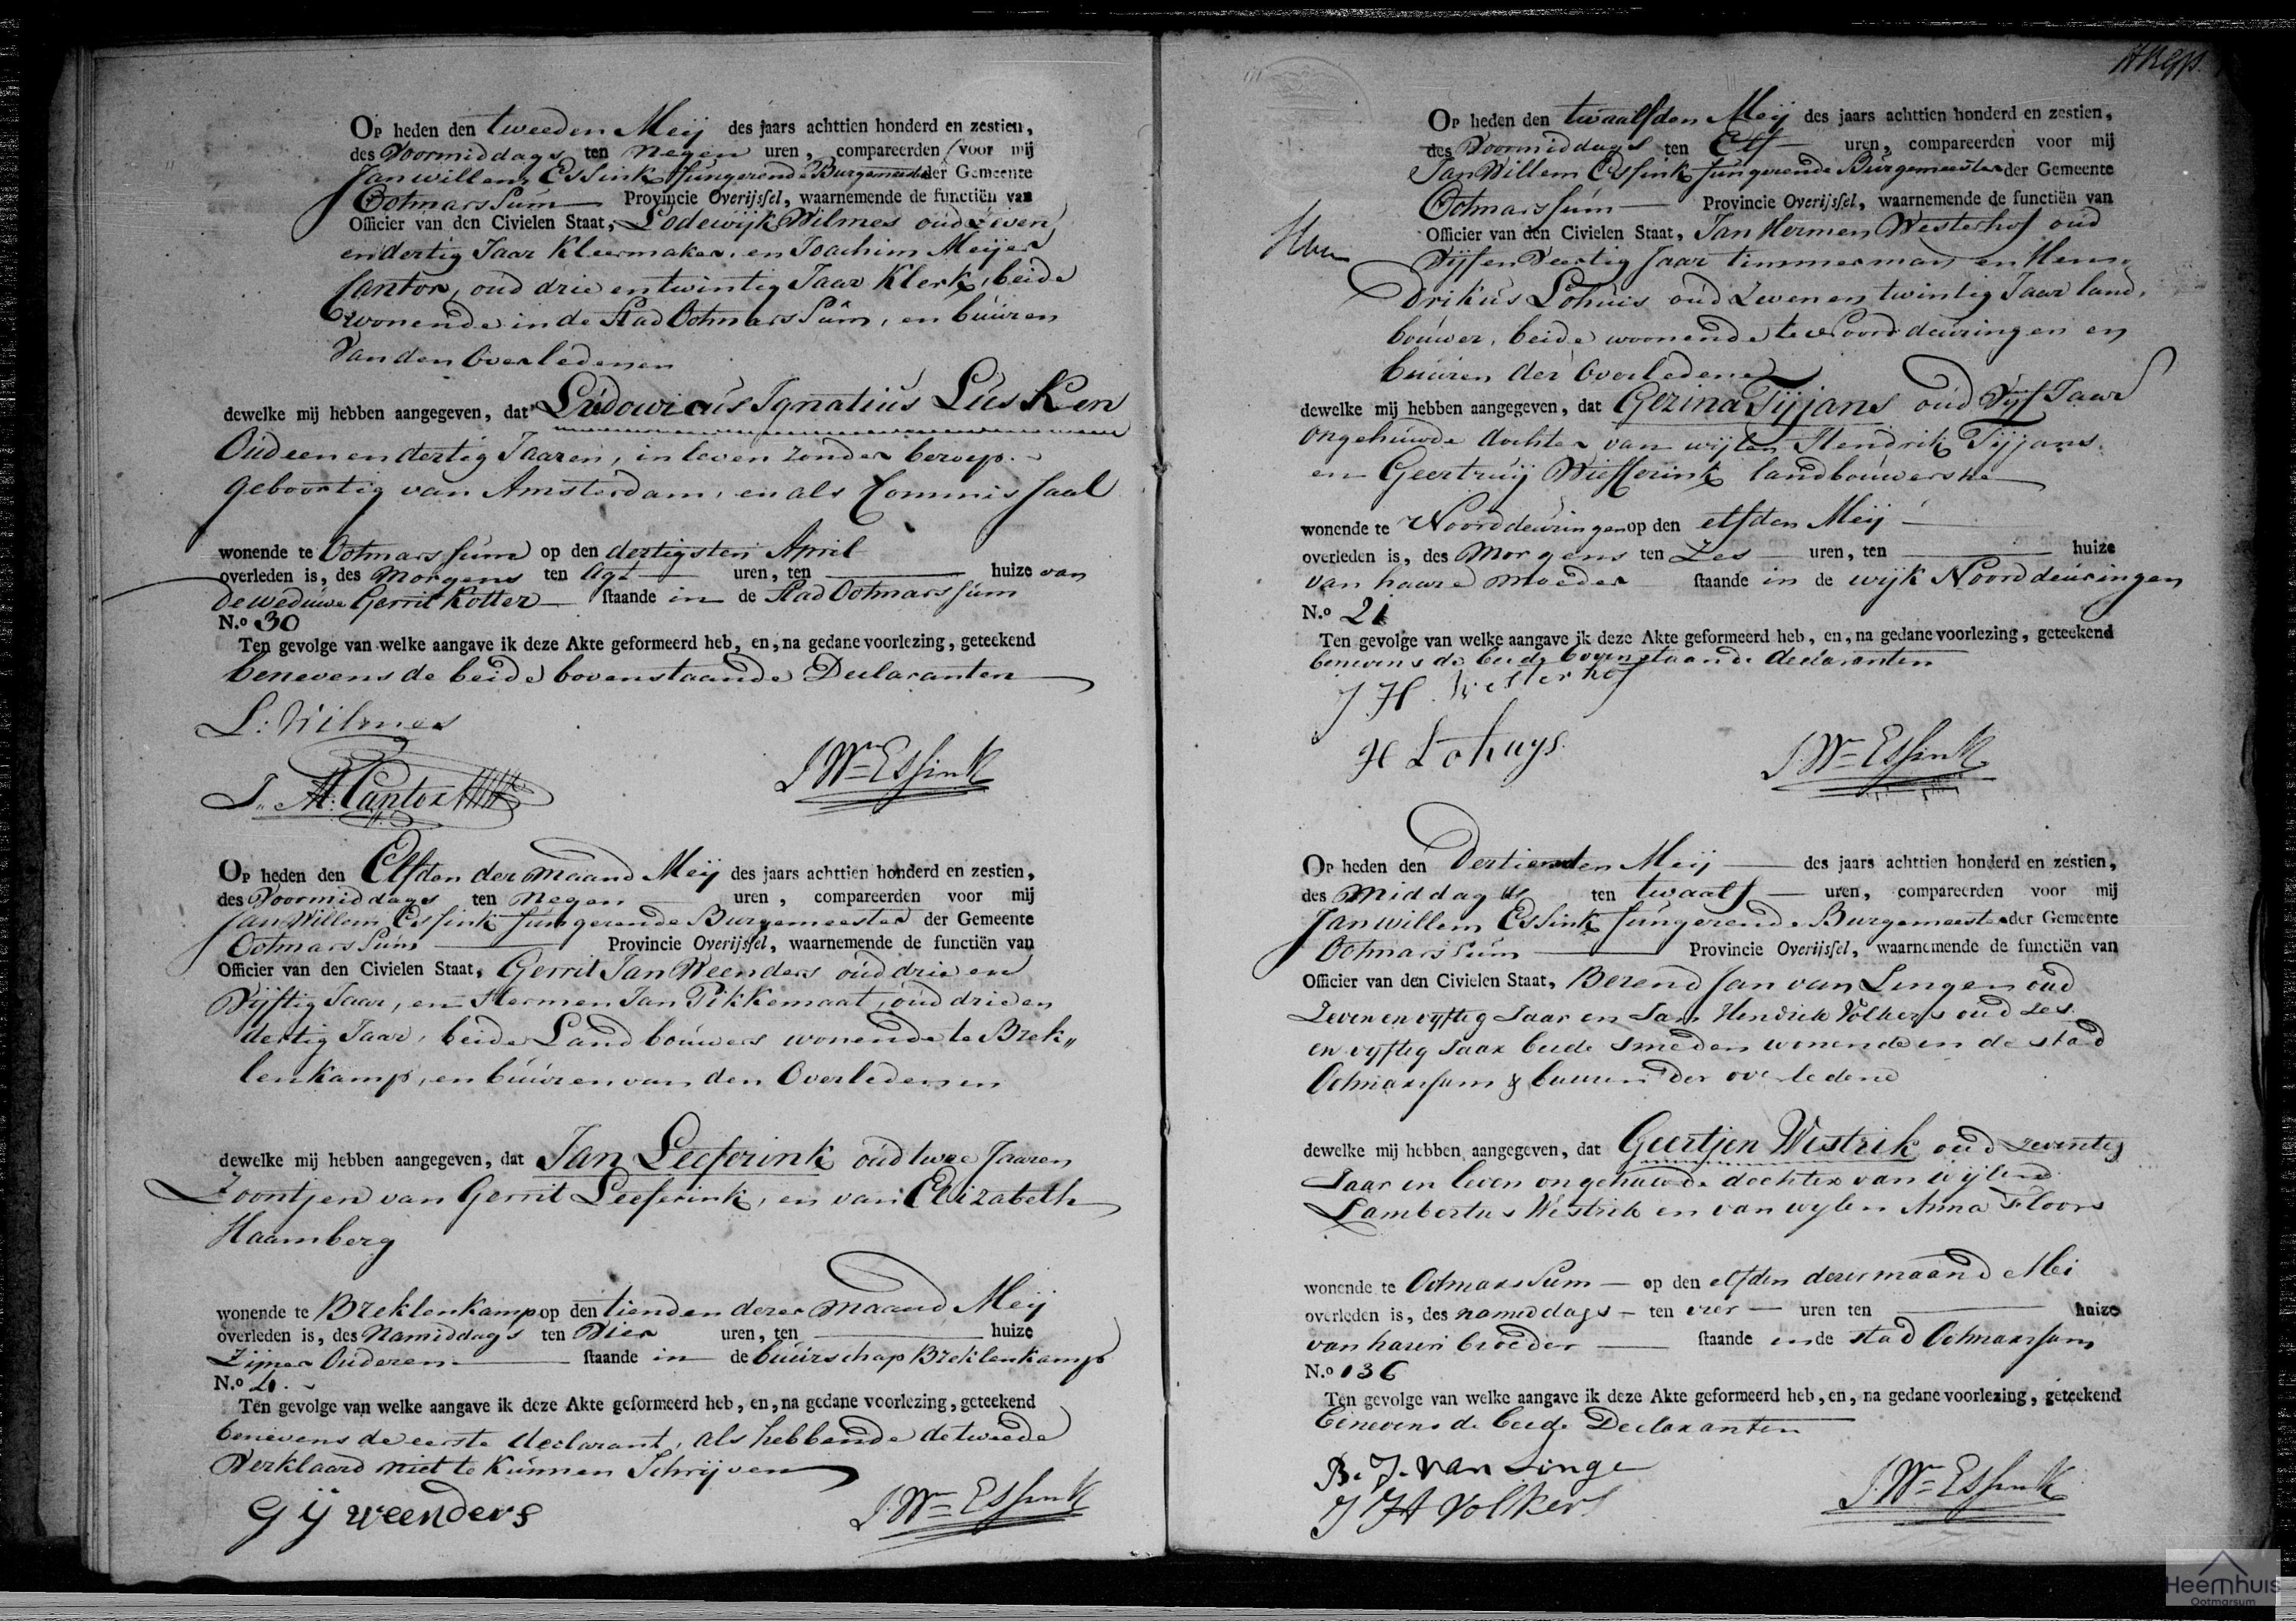 Op heden den tweeden Meij des jaars achttien honderd en zestien,
des Voormiddags ten Negen uren, compareerden voor mij
Janwillem Essink fungerende Burgemeester der Gemeente
Ootmarssum Provincie Overijssel, waarnemende de functiën van
Officier van den Civielen Staat, Lodewijk Wilmes oud Zeven
en dertig Jaar Kleermaker, en Joachim Meijer
Cantor, oud drie en twintig Jaar Klerk, beide
wonende in de Stad Ootmarssum, en buuren
van den Overledenen
dewelke mij hebben aangegeven, dat Ludowicus Ignatius Lusken
Oud een en dertig Jaaren, in leven zonder beroep.
geboortig van Amsterdam, en als Commissaal
wonende te Ootmarssum op den dertigsten April
overleden is, des Morgens ten Agt uren, ten huize van
de weduwe Gerrit Kotter staande in de Stad Ootmarssum
N.o 30
Ten gevolge van welke aangave ik deze Akte geformeerd heb, en, na gedane voorlezing, geteekend
benevens de beide bovenstaande Declaranten
L: Wilmes
J. M: Cantor
J Wm Essink
Op heden den Elfden der maand Meij des jaars achttien honderd en zestien,
des Voormiddags ten Negen uren, compareerden voor mij
Jan Willem Essink fungerende Burgemeester der Gemeente
Ootmarssum Provincie Overijssel, waarnemende de functiën van
Officier van den Civielen Staat, Gerrit Jan Weenders oud drie en
Vijftig Jaar, en Hermen Jan Pikkemaat, oud drie en
dertig Jaar, beide Landbouwers wonende te Brek„
lenkamp, en buuren van den Overledenen
dewelke mij hebben aangegeven, dat Jan Leeferink oud twee Jaaren
Zoontjen van Gerrit Leeferink, en van Elizabeth
Haamberg
wonende te Breklenkamp op den tienden dezer maand Meij
overleden is, des Namiddags ten Vier uren, ten huize
Zijner Ouderen staande in de buurschap Breklenkamp
N.o
Ten gevolge van welke aangave ik deze Akte geformeerd heb, en, na gedane voorlezing, geteekend
benevens de eerste declarant, als hebbende de tweede
Verklaard niet te Kunnen Schrijven
G ij weenders
J Wm Essink
Op heden den twaalfden Meij des jaars achttien honderd en zestien,
des Voormiddags ten Elf uren, compareerden voor mij
Jan Willem Essink fungerende Burgemeester der Gemeente
Ootmarssum Provincie Overijssel, waarnemende de functiën van
Officier van den Civielen Staat, Jan Hermen Westerhof oud
Vijf en Veertig Jaar timmerman en Hen-
drikus Lohuis oud Zeven en twintig Jaar land,
bouwer, beide woonende te Noorddeuringen en
buuren der Overledene
dewelke mij hebben aangegeven, dat Gezina Tijjans oud Vijf Jaar
ongehuwde dochter van wijlen Hendrik Tijjans
en Geertruij Wiefferink landbouwerske
wonende te Noorddeuringen op den elfden Meij
overleden is, des Morgens ten Zes uren, ten huize
van haare moeder staande in de wijk Noorddeuringen
N.o 21
Ten gevolge van welke aangave ik deze Akte geformeerd heb, en, na gedane voorlezing, geteekend
benevens de beide bovenstaande declaranten
J. H. Westerhof
H Lohuys.
J. Wm Essink
Op heden den Dertienden Meij des jaars achttien honderd en zestien,
des Middags ten twaalf uren, compareerden voor mij
Janwillem Essink fungerende Burgemeester der Gemeente
Ootmarssum Provincie Overijssel, waarnemende de functiën van
Officier van den Civielen Staat, Berend Jan van Lingen oud
Zeven en vyftig Jaar en Jan Hendrik Volkers oud zes
en vyftig Jaar beide Smeden wonende in de stad
Ootmarssum & buuren der overledene
dewelke mij hebben aangegeven, dat Geertjen Westrik oud zeventig
Jaar in leven ongehuwde dochter van wijlend
Lambertus Westrik en van wylen Anna Floors
wonende te Ootmarssum op den elfden dezer maand Mei
overleden is, des namiddags ten vier uren ten huize
van haren broeder staande in de stad Ootmarssum
N.o 136
Ten gevolge van welke aangave ik deze Akte geformeerd heb, en, na gedane voorlezing, geteekend
benevens de beide Declaranten
B. J. van Linge
J H Volkers
J. Wm Essink
Heemhuis
Ootmarsum